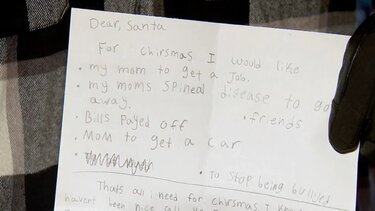 Dear, Santa
For Chirsmas I would like
• my mom to get a Job.
• my moms spineal disease to go
away.
• friends
• Bills Payed off
• Mom to get a car
• to stop being bullyed
Thats all i need for chirsmas I know
havent been nice all